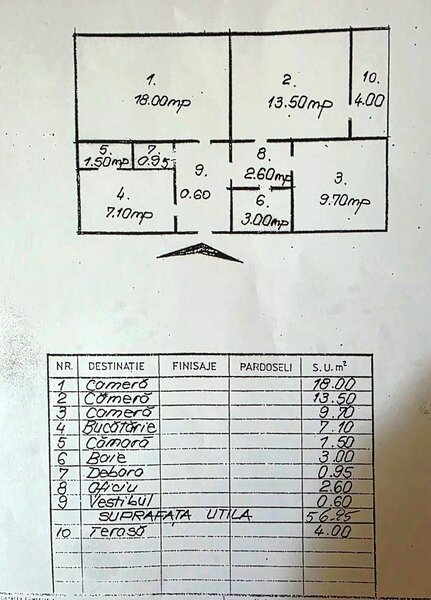 1.
18.00mp
2.
13.50mp
10.
4.00
5.
1.50mp
7.
0.95
9.
0.60
8.
2.60mp
3.
9.70mp
4.
7.10mp
6.
3.00mp
NR. DESTINATIE FINISAJE PARDOSELI S.U.m²
1 Cameră 18.00
2 Cameră 13.50
3 Cameră 9.70
4 Bucătărie 7.10
5 Cămară 1.50
6 Baie 3.00
7 Debara 0.95
8 Oficiu 2.60
9 Vestibul 0.60
SUPRAFAȚA UTILA 56.95
10 Terasă 4.00